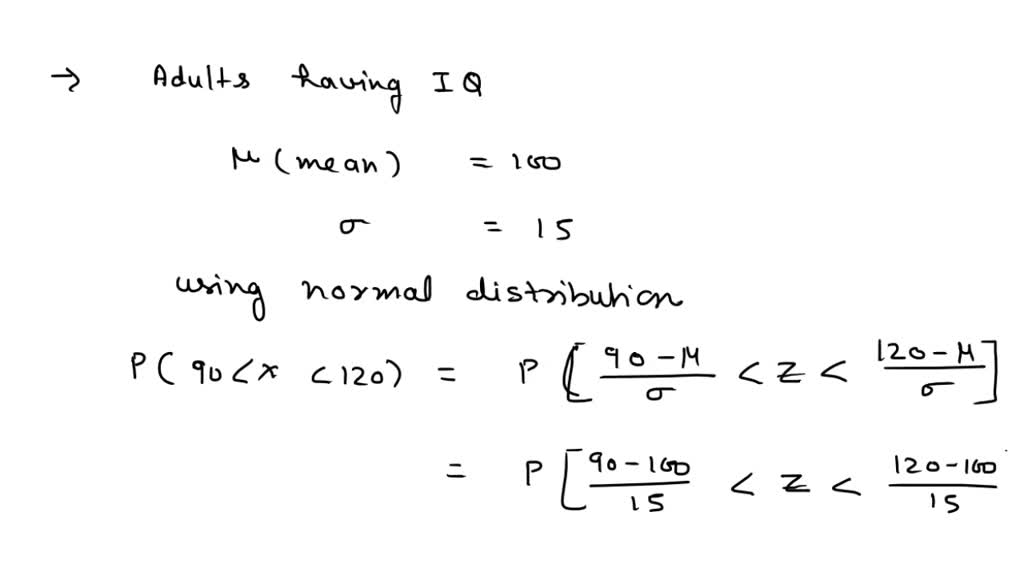 → Adults having IQ
μ (mean) = 100
σ = 15
using normal distribution
P( 90 < x < 120) = P [ (90 - μ)/σ < Z < (120 - μ)/σ ]
= P [ (90 - 100)/15 < Z < (120 - 100)/15